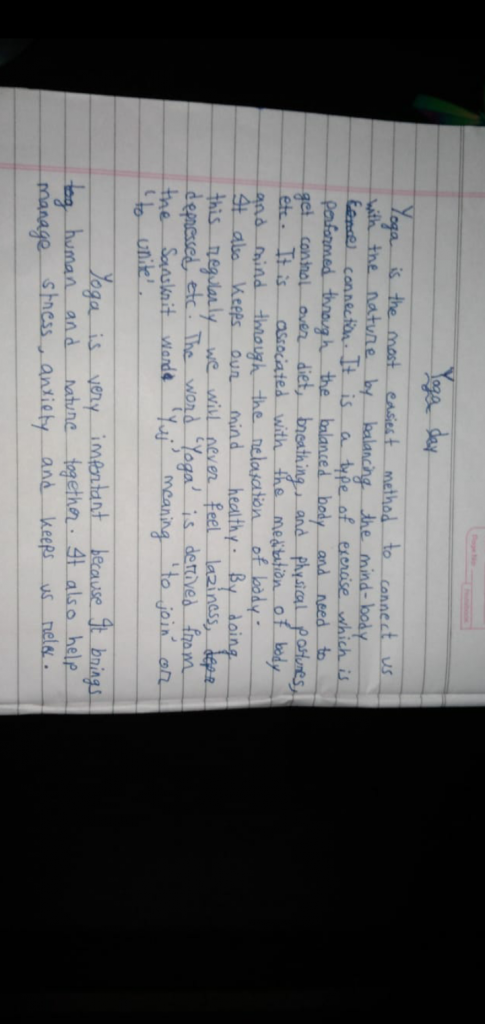 Yoga day
Yoga is the most easiest method to connect us
with the nature by balancing the mind-body
connection. It is a type of exercise which is
performed through the balanced body and need to
get control over diet, breathing, and physical postures,
etc. It is associated with the meditation of body
and mind through the relaxation of body.
It also keeps our mind healthy. By doing
this regularly we will never feel laziness,
depressed, etc. The word 'Yoga' is derived from
the Sanskrit word 'Yuj', meaning 'to join' or
'to unite'.
Yoga is very important because It brings
human and nature together. It also help
manage stress, anxiety and keeps us relax.